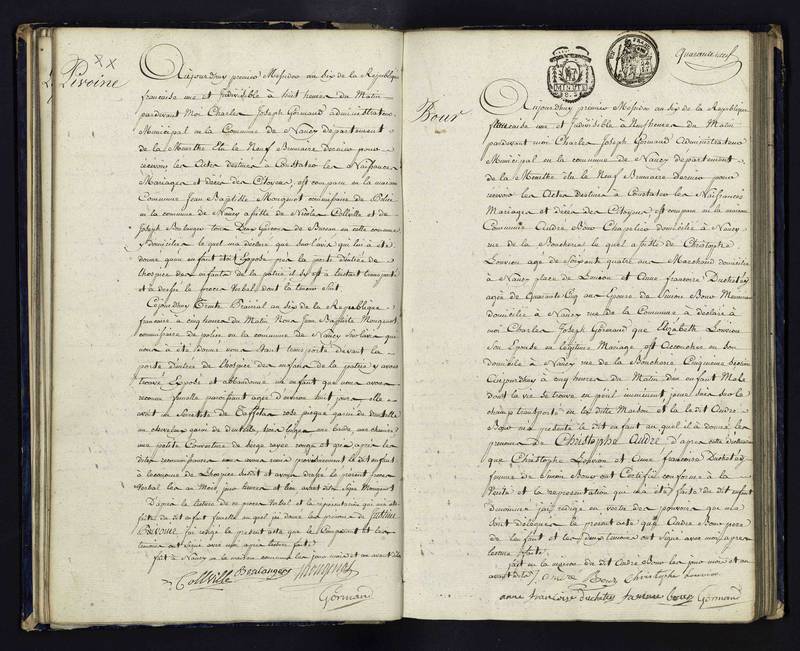 Pivoine
Aujourdhuy premier Messidor an six de la Republique
francaise une et Indivisible à huit heures du Matin
pardevant Moi Charles Joseph Gormand administrateur
Municipal en la Commune de Nancy departement
de la Meurthe Elu le Neuf Brumaire Dernier pour
recevoir les Actes destinés à Constater les Naissances
Mariages et décès des Citoyens, est comparu en la maison
Commune Jean Baptiste Mougenot commissaire de Police
en la commune de Nancy assisté de Nicolas Collville et de
Joseph Boulanger tous Deux Garçons de Bureau en cette commune
y domiciliés le quel m'a declaré que sur l'avis qui lui a été
donné qu'un enfant était Exposé près la porte d'entrée de
l'hospice des enfants de la patrie il s'y est à l'instant transporté
et a dressé le procès Verbal dont la teneur suit
Cejourdhuy Trente Prairial an six de la Republique
francaise à cinq heures du Matin Nous Jean Baptiste Mougenot
commissaire de police en la commune de Nancy sur l'avis qui
nous a été donné nous étant transporté devant la
porte d'entrée de l'hospice des enfans de la patrie y avons
trouvé Exposé et abandonné un enfant que nous avons
reconnu femelle paroissant agé d'environ huit jours, elle
avoit un de Taffetas rose piqué garni de dentelle
un garni de dentelle, trois langes, une bande, une chemise
une petite Couverture de serge rayée rouge et après les
dites reconnaissances nous avons remis provisoirement le dit enfant
à l'econome de l'hospice susdit et avons dressé le présent procès
Verbal les an Mois jour heures et lieu avant dits Signé Mougenot
D'après la lecture de ce procès Verbal et la représentation qui m'a été
faite du dit enfant femelle au quel j'ai donné les prenoms de Justine
Pivoine j'ai rédigé le présent acte que le Comparant et les
temoins ont signé avec moi après lecture faite
fait à Nancy en la maison commune les jour mois et an avant dits
Collville Boulanger Mougenot
Gormand
Quarante neuf
Bour
Aujourdhuy premier Messidor an six de la Republique
francaise une et Indivisible à Neuf heures du Matin
pardevant moi Charles Joseph Gormand Administrateur
Municipal en la commune de Nancy département
de la Meurthe élu le Neuf Brumaire Dernier pour
recevoir les Actes Destinés à Constater les Naissances
Mariages et décès des Citoyens est comparu en la maison
Commune André Bour Chapelier domicilié à Nancy
rue de la Boucherie le quel assisté de Christophe
Louvion agé de Soixante quatre ans Marchand domicilié
à Nancy place de et Anne francoise Duchetés
agée de Quarante ans Epouse de Simon Bour
domiciliée à Nancy rue de la Commune a déclaré à
moi Charles Joseph Gormand que Elizabeth Louvion
son Epouse en legitime Mariage est Accouchée en son
domicile à Nancy rue de la Boucherie Cinquieme Section
Aujourdhuy à cinq heures du Matin d'un enfant Male
dont la vie se trouve en péril imminent jour sur le
champ transporté en la ditte Maison et là le dit André
Bour m'a présenté le dit enfant au quel il a donné les
prenoms de Christophe André D'après cette déclaration
que Christophe Louvion et Anne francoise Duchetés
femme de Simon Bour ont Certifié conforme à la
Vérité et la représentation qui m'a été faite du dit enfant
j'ai rédigé en vertu des pouvoirs qui me
sont délégués le présent acte que André Bour pere
de l'enfant et les deux temoins ont signé avec moi après
lecture faite
fait en la maison du dit André Bour les jour mois et an
avant dits André Bour Christophe Louvion
anne francoise duchetés bour Gormand